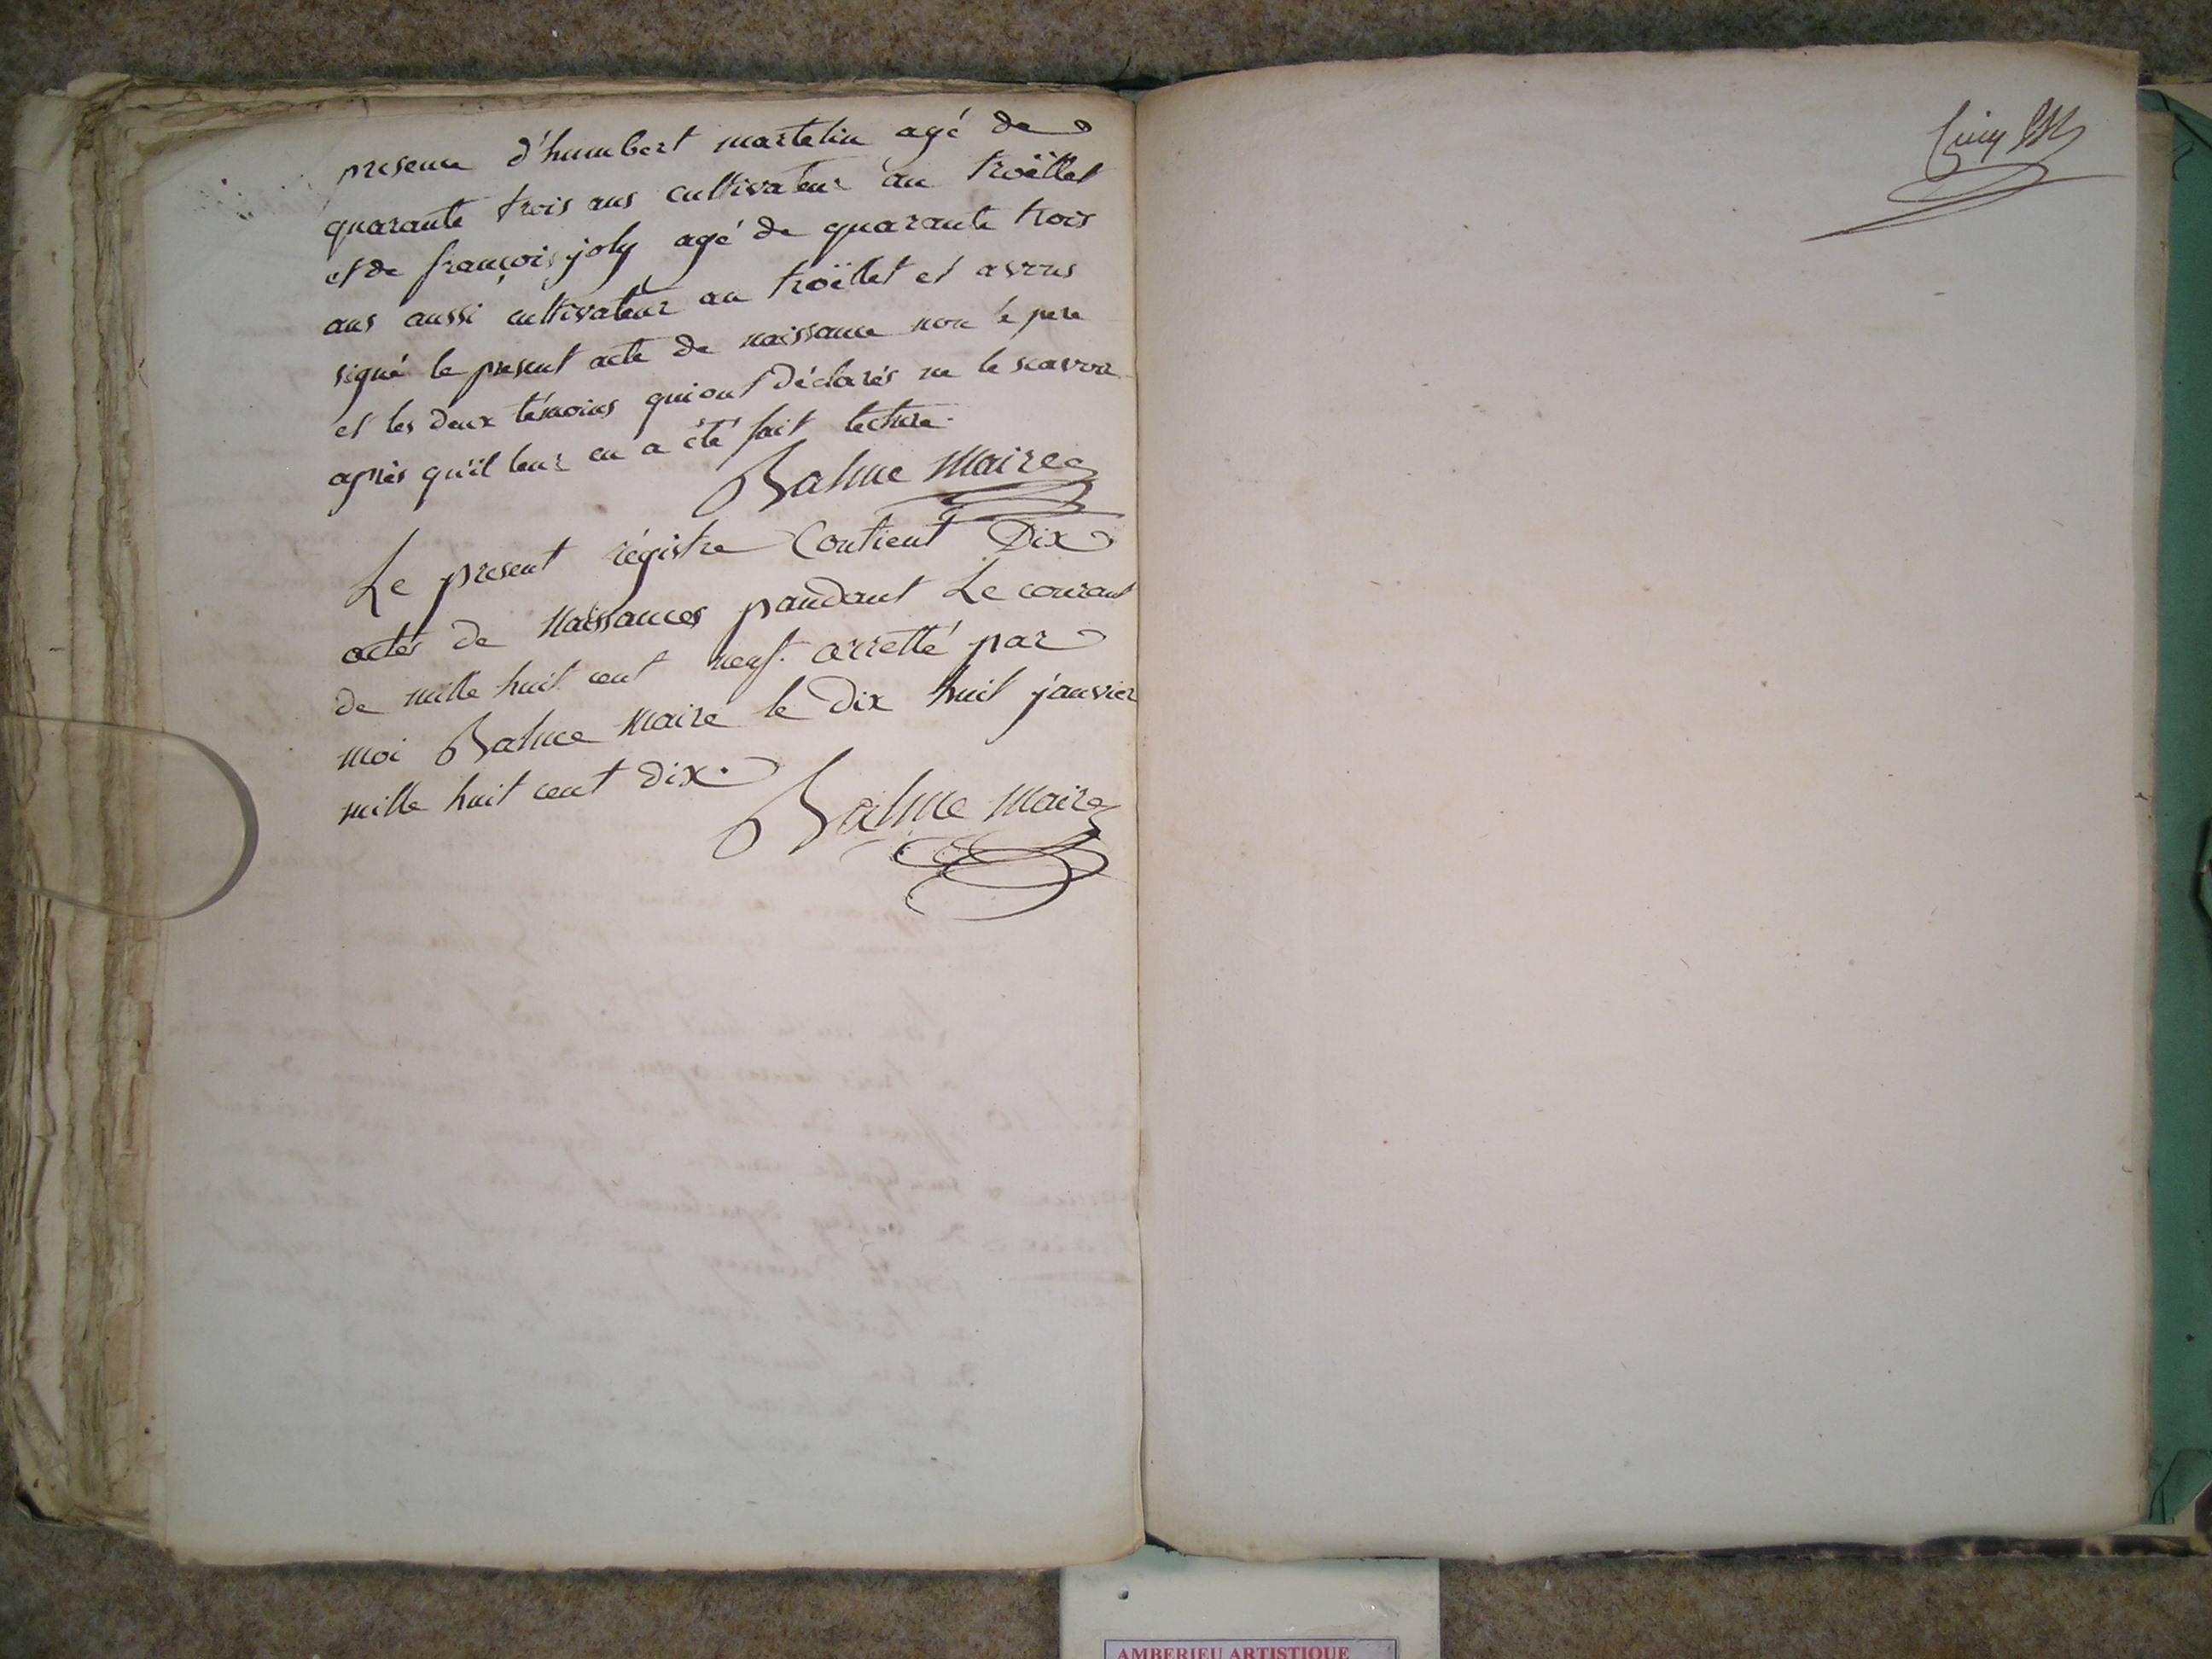 presence d'humbert martelin agé de
quarante trois ans cultivateur au troëllet
et de françois joly agé de quarante trois
ans aussi cultivateur au troëllet et avons
signé le present acte de naissance non le pere
et les deux témoins qui ont déclarés ne le scavoir
après qu'il leur en a été fait lecture.
Balme Maire
Le present régistre Contient Dix
actes de Naissances pandant Le courant
de mille huit cent neuf. arretté par
moi Balme Maire le Dix huit janvier
mille huit cent Dix.
Balme Maire
AMBERIEU ARTISTIQUE